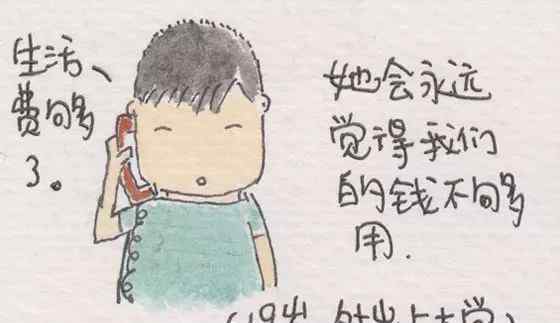 生活、
费够
了。
她会永远
觉得我们
的钱不够
用.
(19岁,外出上大学)